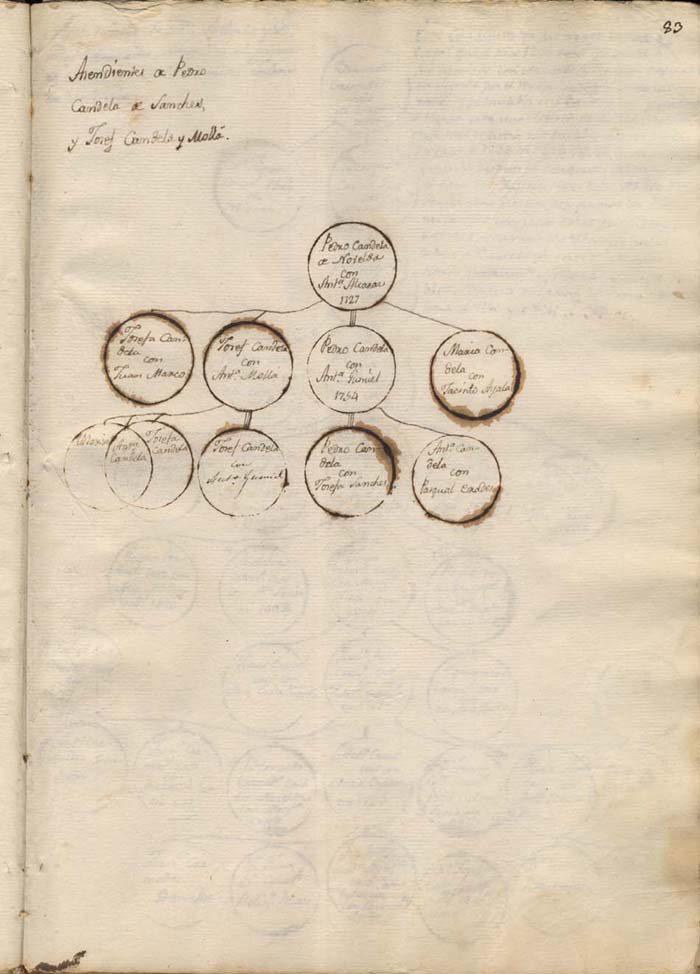 83
Asendientes de Pedro
Candela de Sanches,
y Josef Candela y Mollá.
Pedro Candela
de Novelda
con
Antª. Alcaraz
1727
Josefa Can-
dela
con
Juan Marco
Josef Candela
con
Antª. Molla
Pedro Candela
con
Antª.
1754
Maria Can-
dela
con
Jacinto Ayala
Maria
Ana
Candela
Josefa
Candela
Josef Candela
con
Pedro Can-
dela
con
Josefa Sanches
Antª. Can-
dela
con
Pasqual